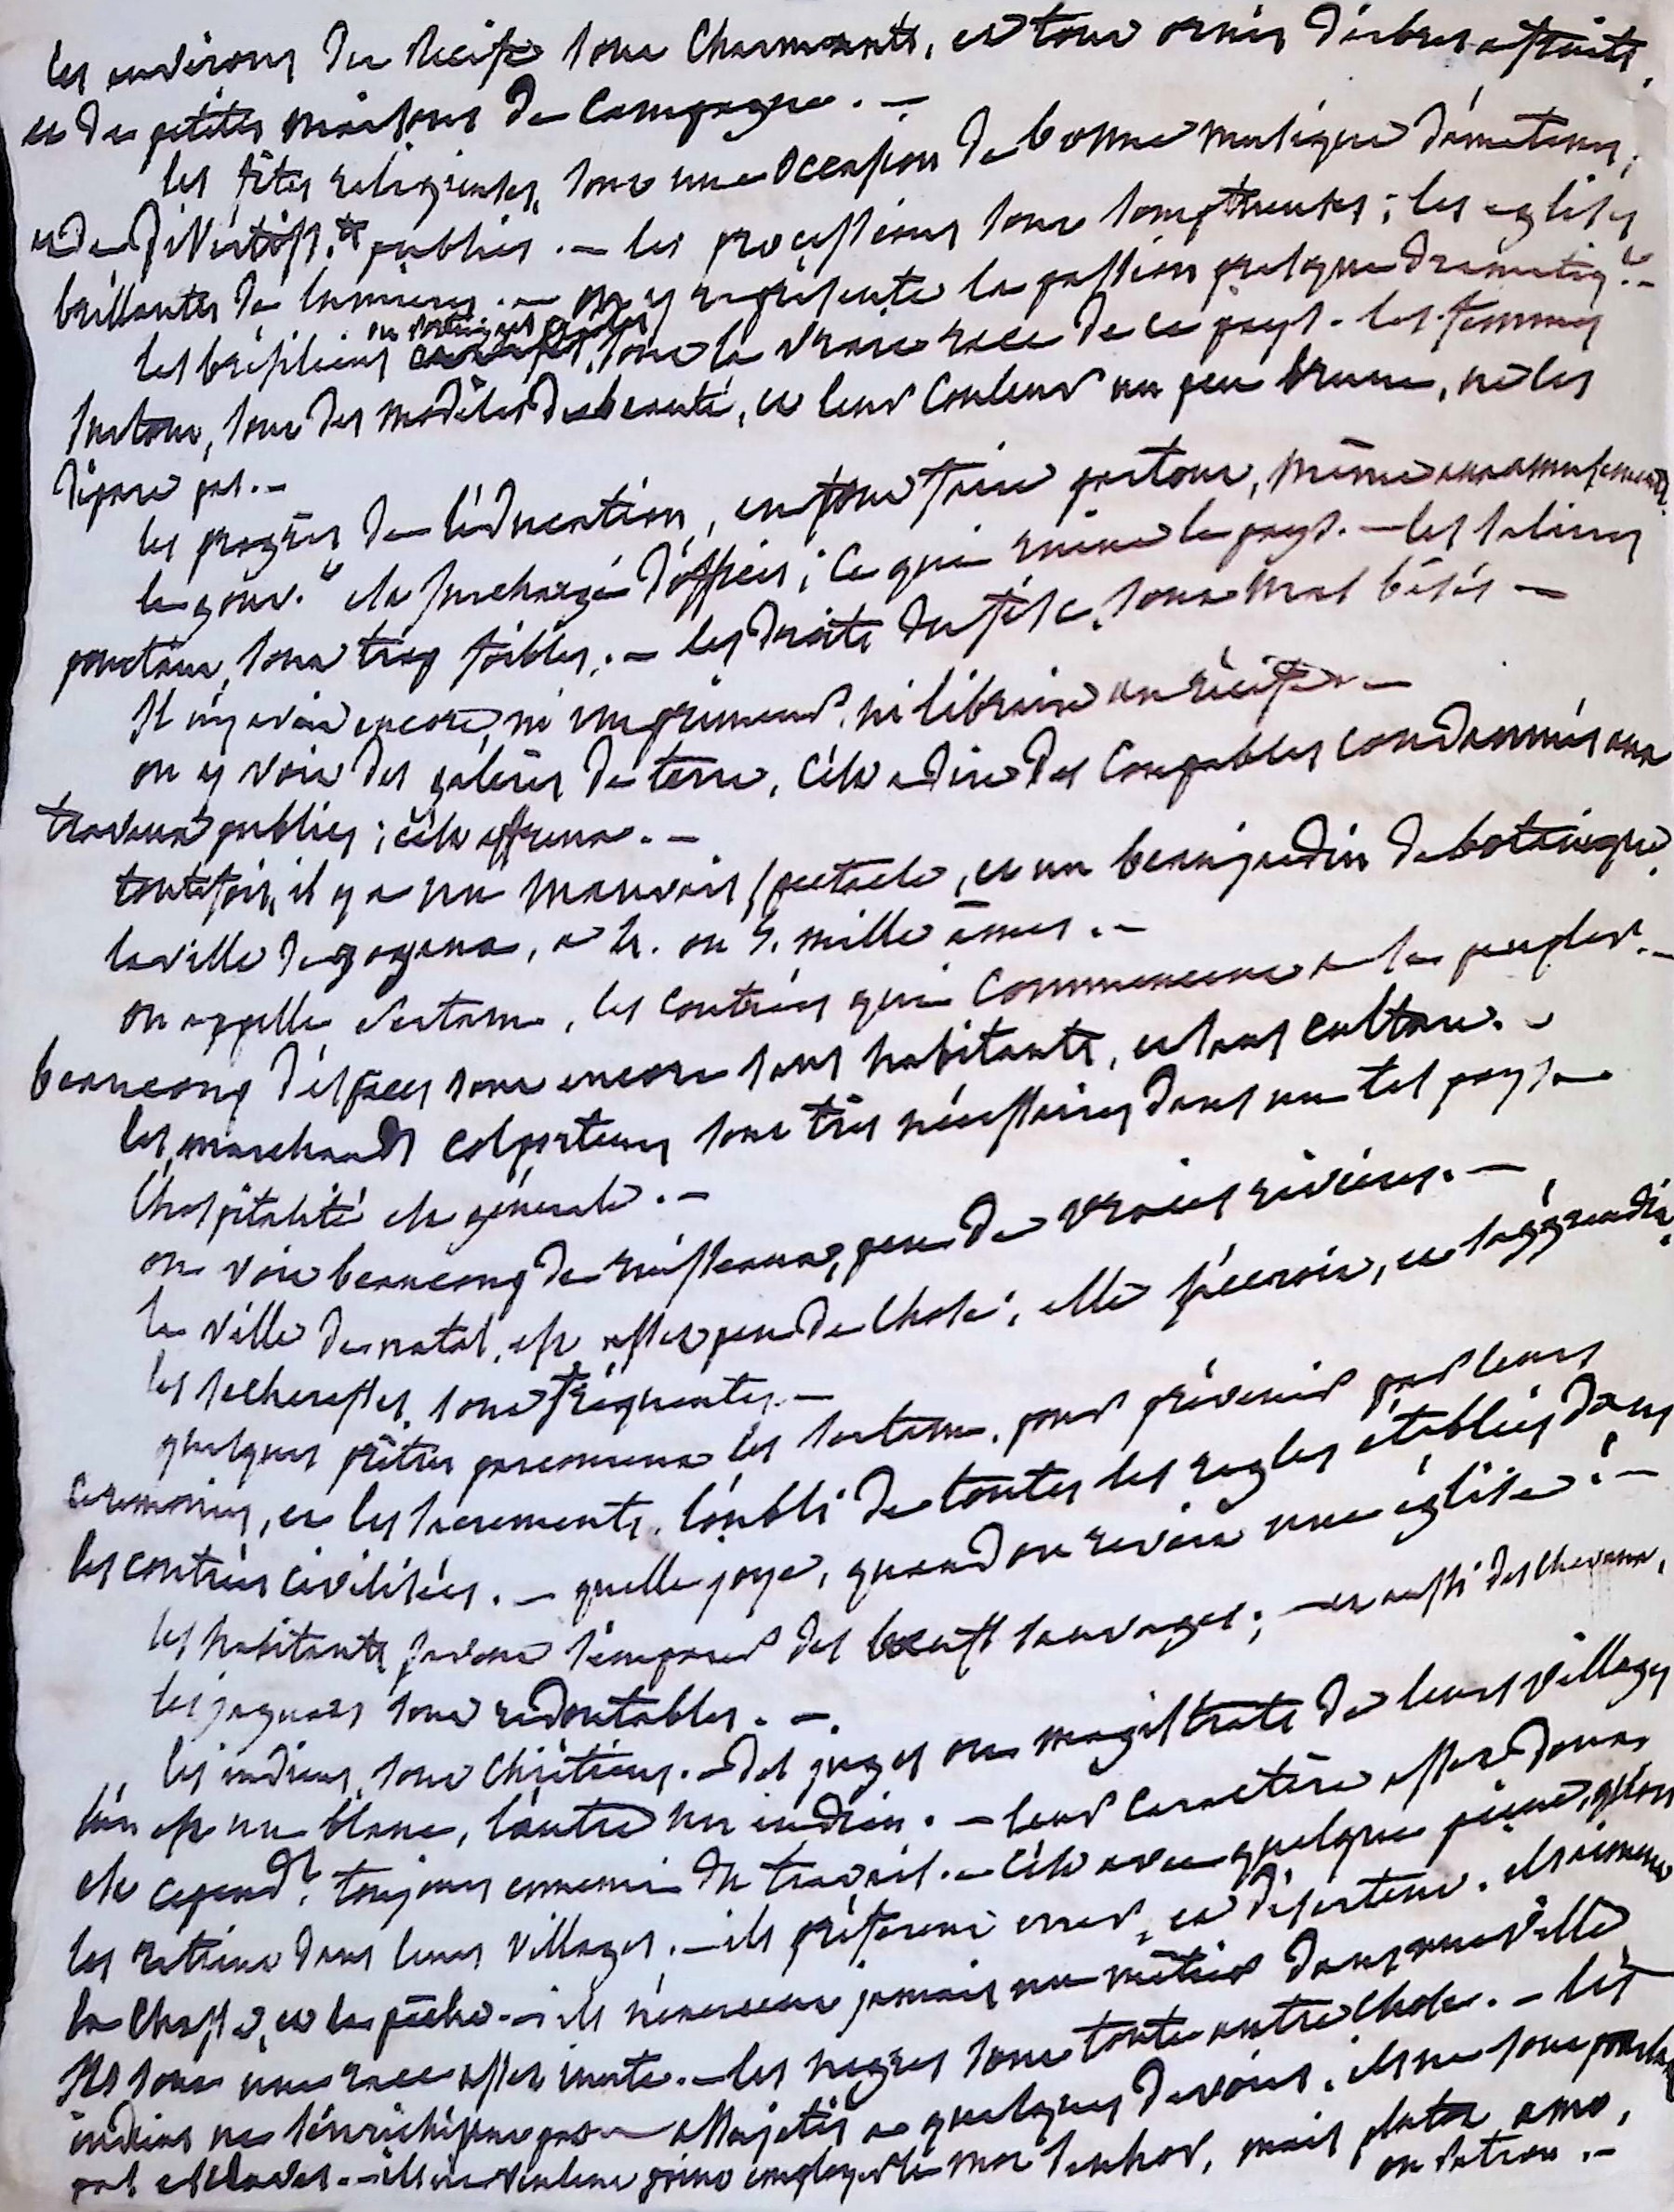 les environs du Récife sont charmants, et tout ornés d'arbres
et de petites maisons de campagne. —
les fêtes religieuses, sont une occasion de bonne musique d'amateurs,
et de divertiss.ts publics. — les processions sont somptueuses ; les eglises
brillantes de lumieres. — on y représente la passion presque dramatiq.t —
ou portugais créoles
les brésiliens sont la vraie race de ce pays. les femmes
surtout, sont des modèles de beauté, et leur couleur un peu brune, ne les
dépare pas. —
les progrès de l'éducation, en font faire partout, même aux amusements.
le gouv.t est surchargé d'offices ; ce qui ruine le pays. — les salaires
pourtant, sont trop foibles. — les droits du fisc, sont mal basés —
Il n'y avoit encore, ni imprimeur, ni libraire au récife. —
on y voit des galères de terre, c'est a dire des coupables condamnés aux
travaux publics ; c'est affreux. —
toutefois, il y a un mauvais spectacle, et un beau jardin de botanique.
la ville de goyana, a 4. ou 5. mille âmes. —
on appelle sertam, les contrées qui commencent a se peupler. —
beaucoup d'espaces sont encore sans habitants, et sans culture. —
les marchands colporteurs sont très nécessaires dans un tel pays —
l'hospitalité est générale. —
on voit beaucoup de ruisseaux, peu de vraies rivières. —
la ville de natal, est assez peu de chose ; elle s'accroit, et s'aggrandit.
les secheresses, sont fréquentes. —
quelques prêtres parcourent les sertam, pour prévenir par leurs
ceremonies, et les sacrements, l'oubli de toutes les regles établies dans
les contrées civilisées. — quelle joye, quand on revoit une église ! —
les habitants savent s'emparer des bœufs sauvages ; — et aussi des chevaux,
les jaguars sont redoutables. —
les indiens, sont chrétiens. — des juges ou magistrats de leurs villages
l'un est un blanc, l'autre un indien. — leur caractère assez doux
est cepend.t toujours ennemi du travail. — c'est avec quelque peine, qu'on
les retient dans leurs villages. — ils préfèrent errer, et désertent. ils aiment
la chasse, et la pêche. — ils n'exercent jamais un métier dans une ville
Ils sont une race assez inerte. — les negres sont toute autre chose. — les
indiens ne s'enrichissent pas — assujetis a quelques devoirs, ils ne sont
pas esclaves. — ils ne veulent point employer le mot senhor, mais amo,
ou patron. —